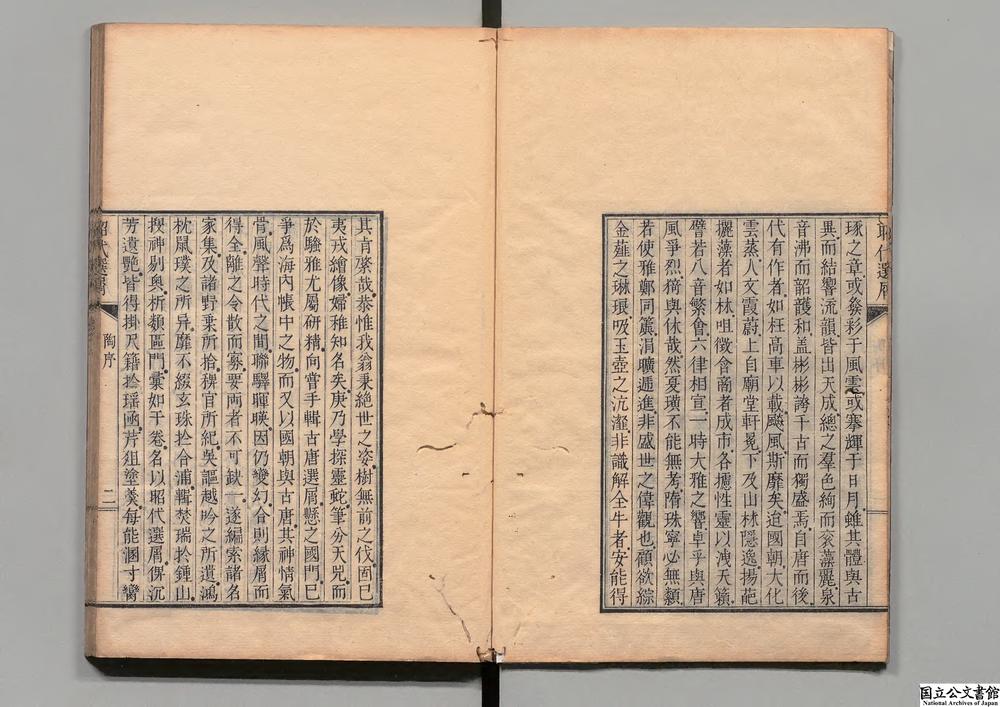 昭代選屑
琢之章或絫彩于風雲或搴輝于日月雖其體與古
異而結響流韻皆出天成總之羣色絢而袞藻麗泉
音沸而韶護和蓋彬彬誇千古而獨盛焉自唐而後
代有作者如枉高車以載飈風斯靡矣迨國朝大化
雲蒸人文霞蔚上自廟堂軒冕下及山林隱逸揚葩
擺藻者如林咀徵含商者成市各攄性靈以洩天籟
譬若八音繁會六律相宣一時大雅之響卓乎與唐
風爭烈猗與休哉然夏璜不能無考隋珠寧必無纇
若使雅鄭同簾涓曠遞進非盛世之偉觀也顧欲綜
金薤之琳琅吸玉壺之沆瀣非識解全牛者安能得
其肯綮哉恭惟我翁秉絶世之姿樹無前之伐固已
夷戎繪像婦稚知名矣庚乃學探靈蛇筆分天兕而
於騷雅尤屬研精向嘗手輯古唐選屑懸之國門已
爭爲海內帳中之物而又以國朝與古唐其神情氣
骨風聲時代之間聯驛暉暎因仍變幻合則緣屑而
得全離之令散而寡要兩者不可缺一遂編索諸名
家集及諸野乗所拾稗官所紀吳謳越吟之所遺鴻
枕鼠璞之所异靡不綴玄珠於合浦輯焚瑞於鍾山
搜神剔奥析類區門彙如干卷名以昭代選屑俾沉
芳遺艷皆得掛尺籍於瑶凾芹俎塗羹每能溷寸臠
昭代選屑
陶序
二
国立公文書館
National Archives of Japan